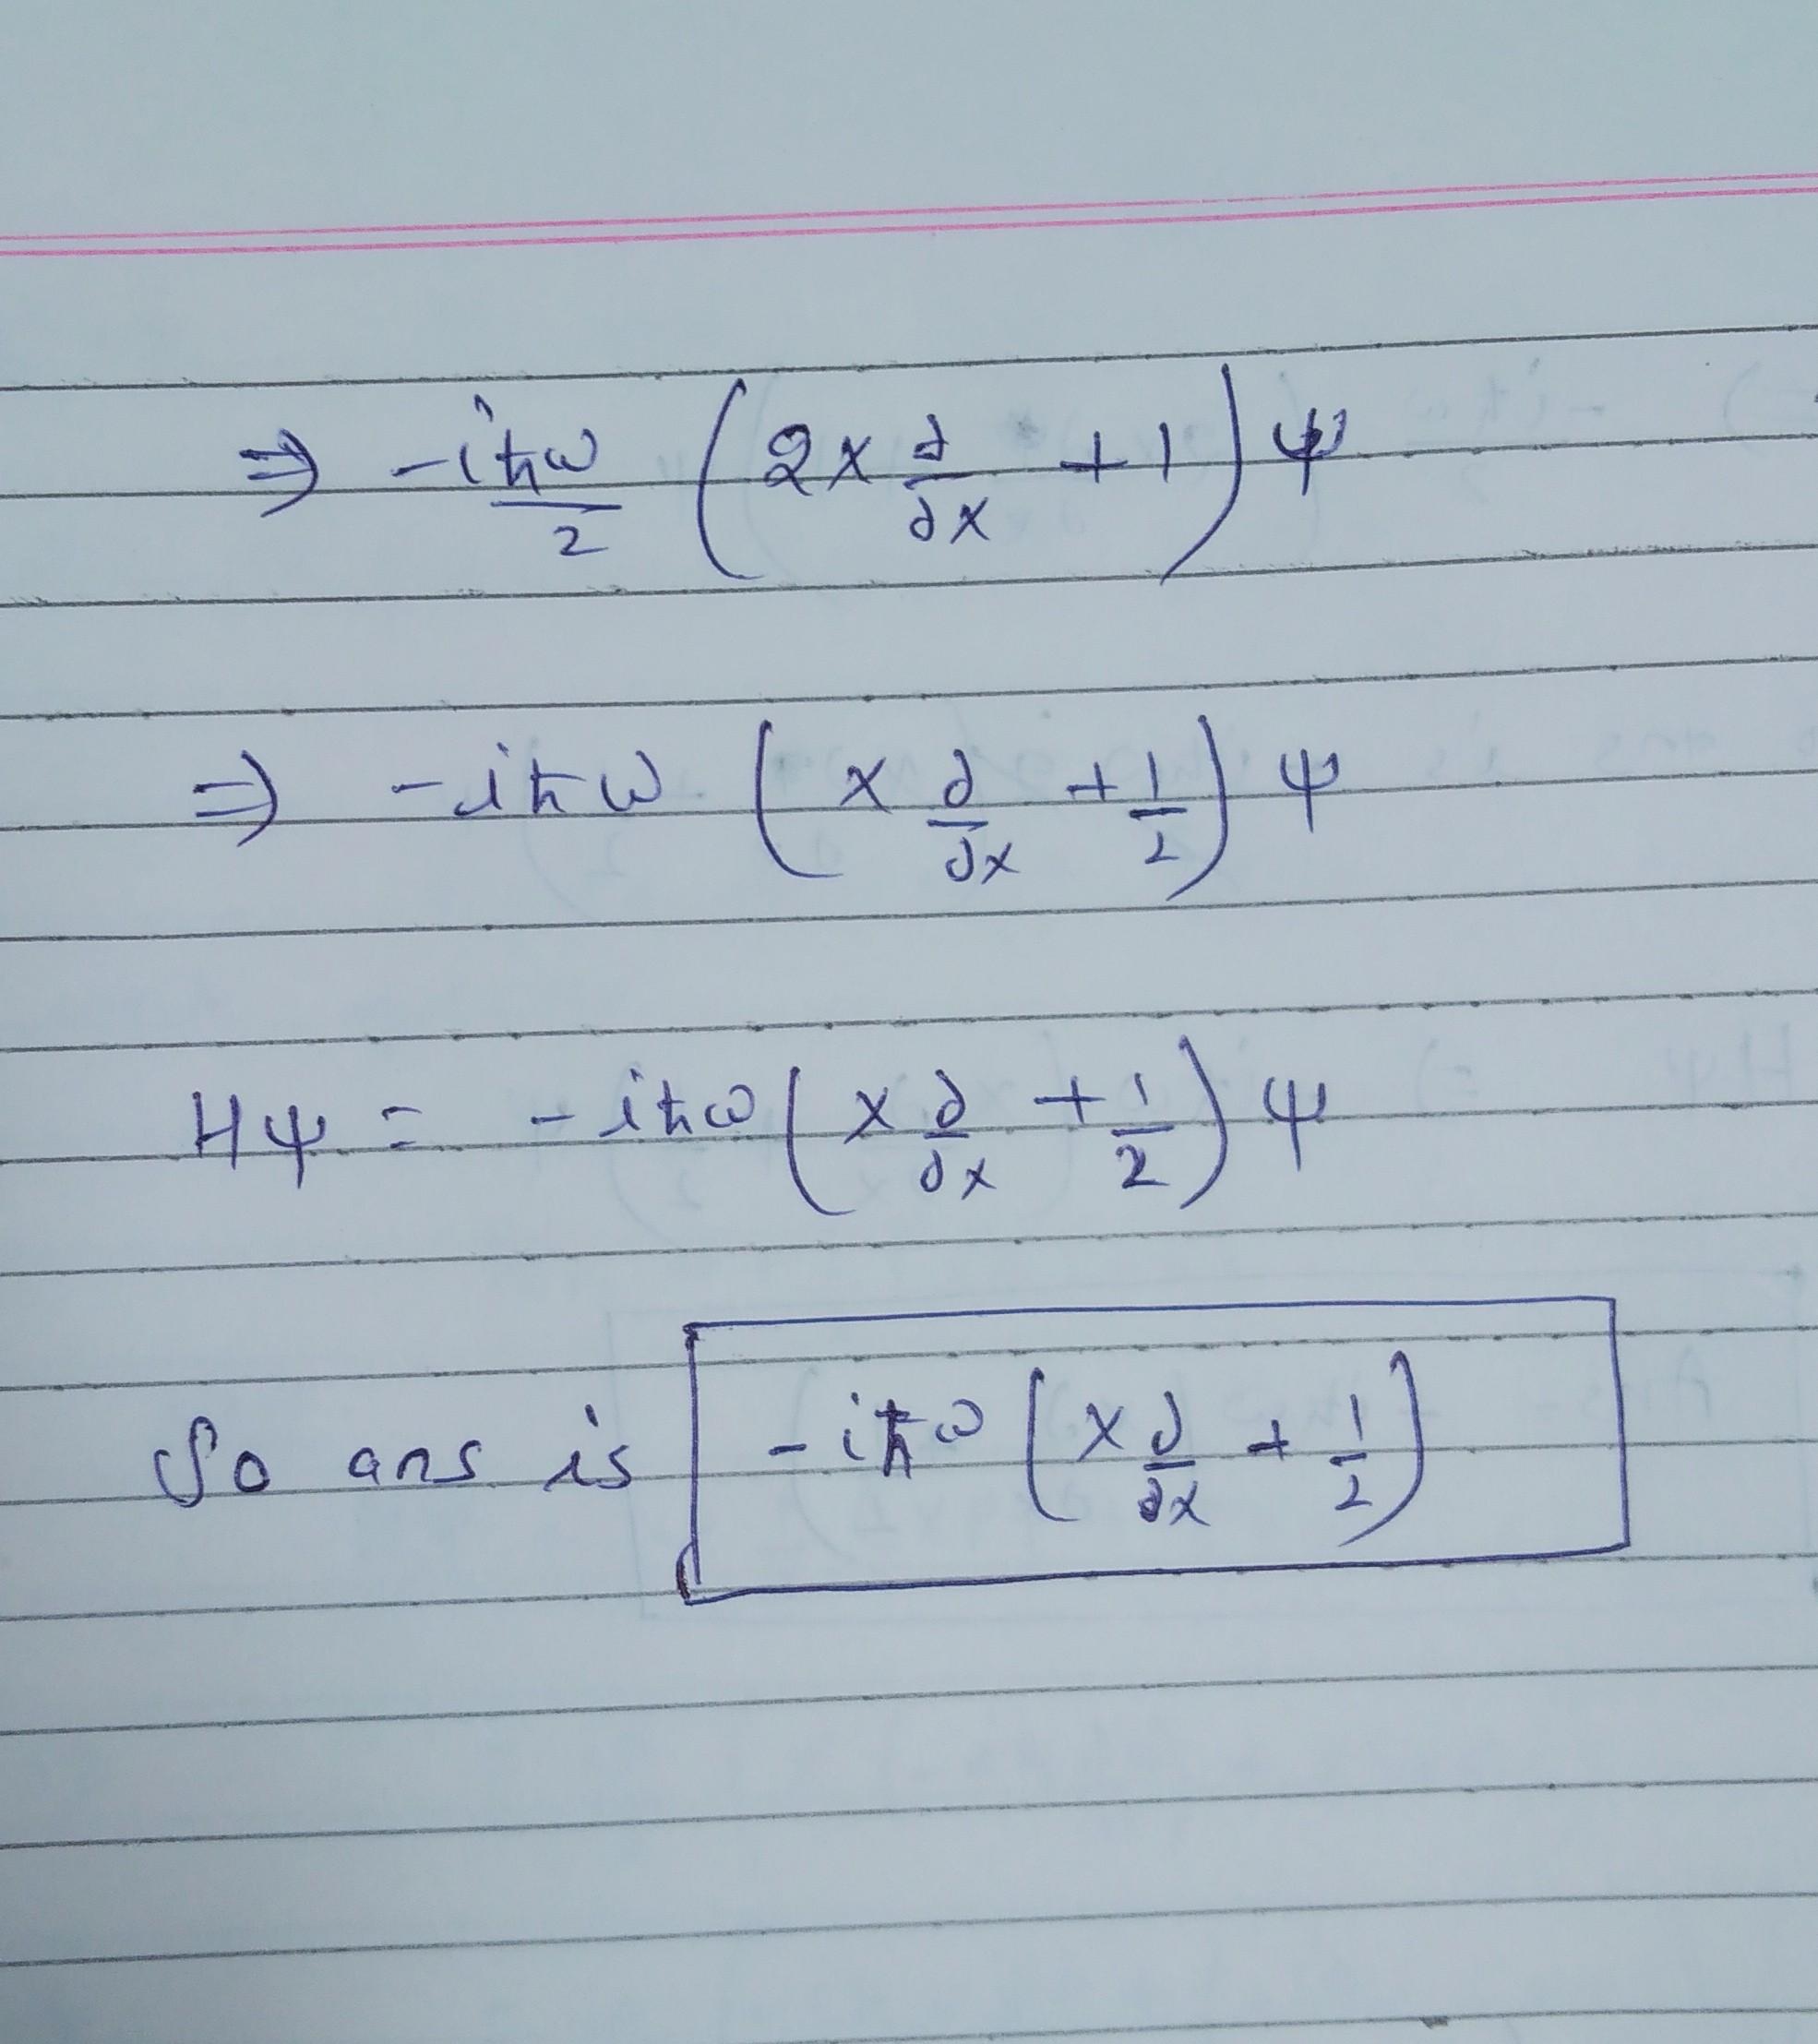 ⇒ -iħω/2 (2x ∂/∂x + 1) ψ
⇒ -iħω (x ∂/∂x + 1/2) ψ
Hψ = -iħω (x ∂/∂x + 1/2) ψ
So ans is -iħω (x ∂/∂x + 1/2)